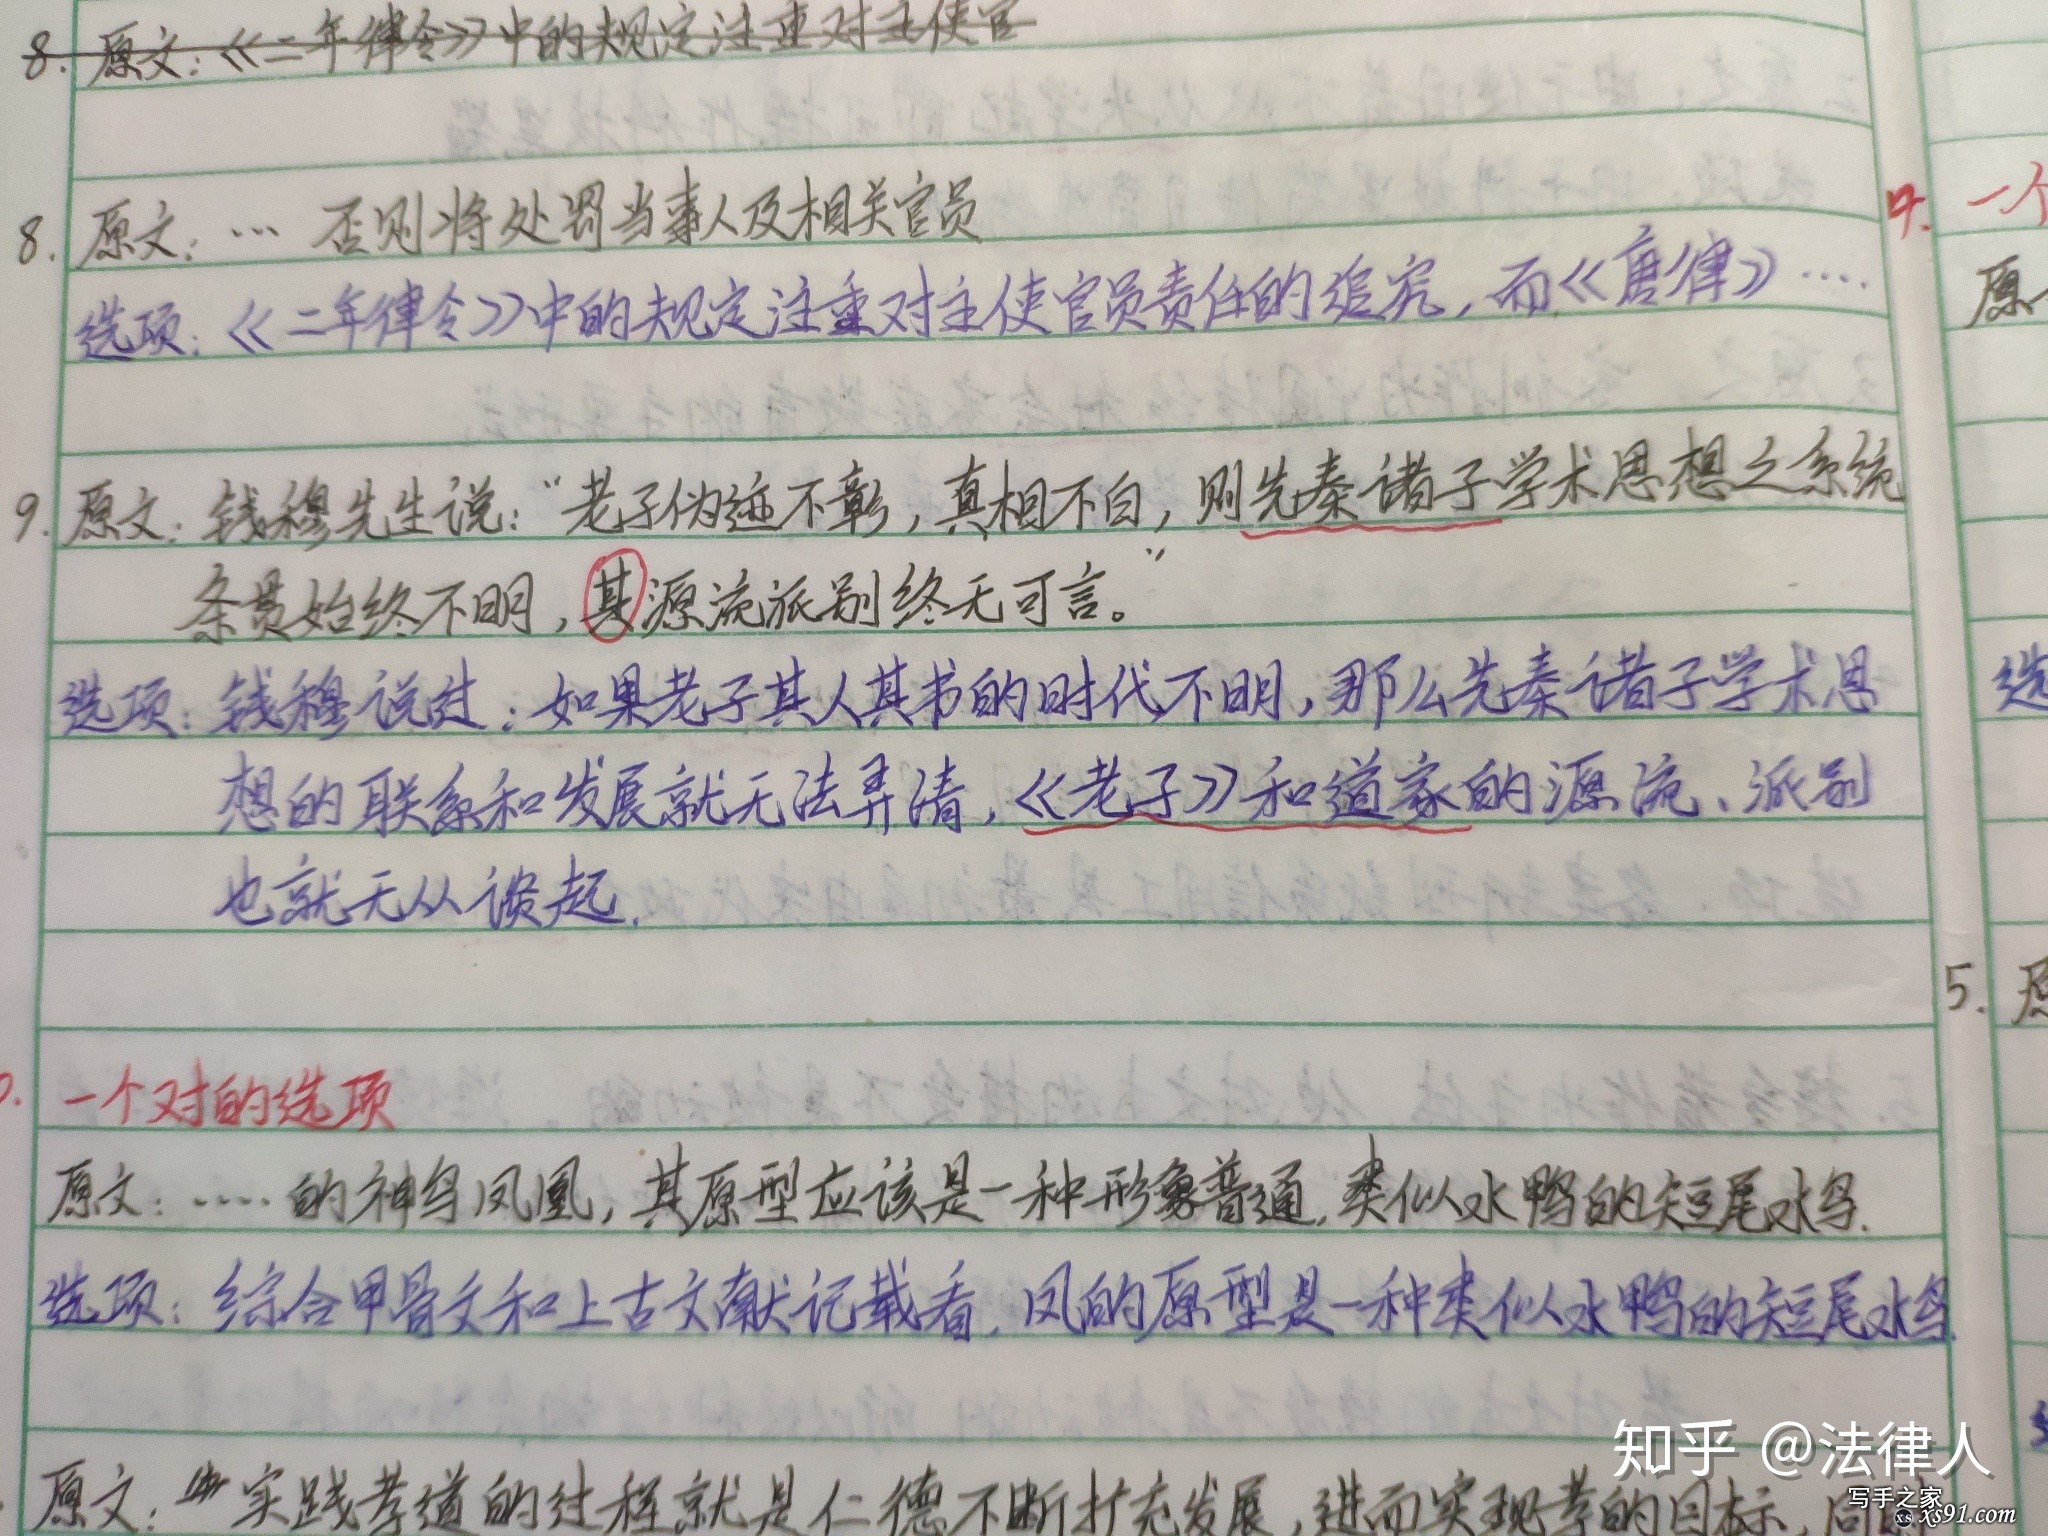 8. 原文：《二年律令》中的规定注重对主使官
8. 原文：… 否则将处罚当事人及相关官员
选项：《二年律令》中的规定注重对主使官员责任的追究，而《唐律》….
9. 原文：钱穆先生说：“老子伪迹不彰，真相不白，则先秦诸子学术思想之系统
条贯始终不明，其源流派别终无可言。”
选项：钱穆说过：如果老子其人其书的时代不明，那么先秦诸子学术思
想的联系和发展就无法弄清，《老子》和道家的源流、派别
也就无从谈起.
一个对的选项
原文：…… 的神鸟凤凰，其原型应该是一种形象普通，类似水鸭的短尾水鸟.
选项：综合甲骨文和上古文献记载看，凤的原型是一种类似水鸭的短尾水鸟.
原文：实践孝道的过程就是仁德不断扩充发展，进而实现孝的目标，同
4. 一个
原
选
5. 原
知乎 @法律人
写手之家
xs xs91.com